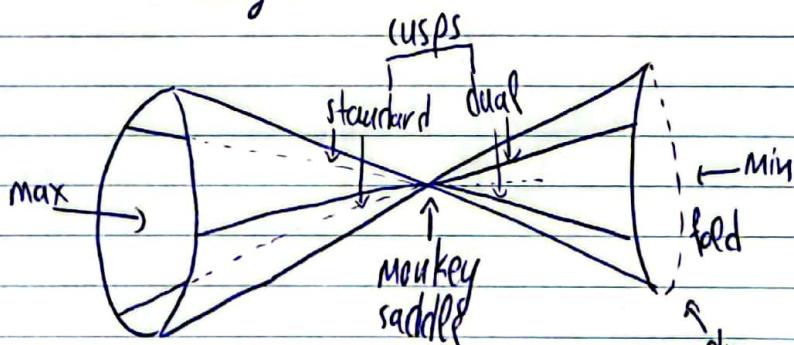 cusps
standard dual
max
Min
fold
Monkey
saddle